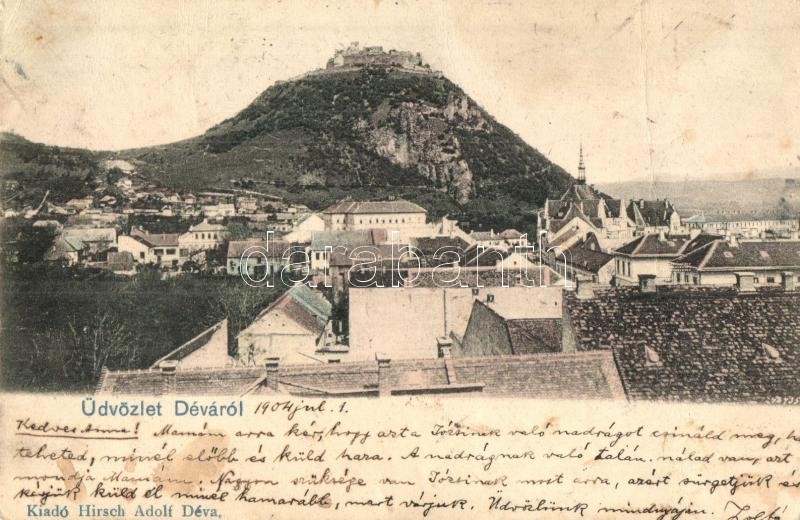 darabanth
Üdvözlet Déváról 1904 jul. 1.
Kedves Anna! Mamám arra kér, hogy azt a Józsinak való nadrágot csináld meg, ha
teheted, minél előbb és küld haza. A nadrágnak való talán nálad van, azt
mondja Mamám. Nagyon szüksége van Józsinak most arra, azért sürgetjük
küld el minél hamarább, mert várjuk. Üdvözlünk mindnyáján.
Kiadó Hirsch Adolf Déva.